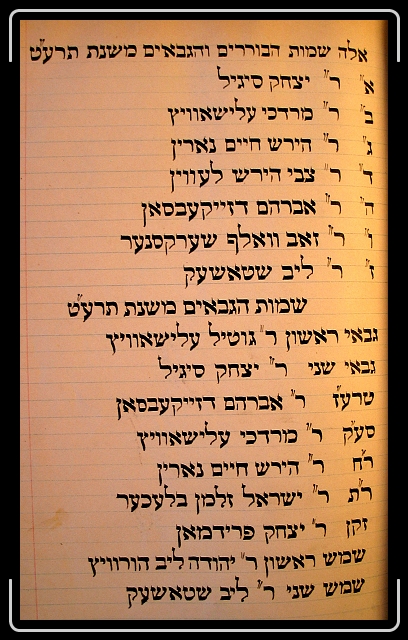 אלה שמות הבוררים והגבאים משנת תרע״ט
א״ ר״ יצחק סיגיל
ב״ ר״ מרדכי עלישאוויץ
ג״ ר״ הירש חיים נארין
ד״ ר״ צבי הירש לעווין
ה״ ר״ אברהם דזייקעבסאן
ו״ ר״ זאב וואלף שערקסנער
ז״ ר״ ליב שטאשעק
שמות הגבאים משנת תרע״ט
גבאי ראשון ר״ גוטיל עלישאוויץ
גבאי שני ר״ יצחק סיגיל
טרע״ז ר״ אברהם דזייקעבסאן
סע״ק ר״ מרדכי עלישאוויץ
ר״ח ר״ הירש חיים נארין
ר״ת ר״ ישראל זלמן בלעכער
זקן ר״ יצחק פרידמאן
שמש ראשון ר״ יהודה ליב הורוויץ
שמש שני ר״ ליב שטאשעק